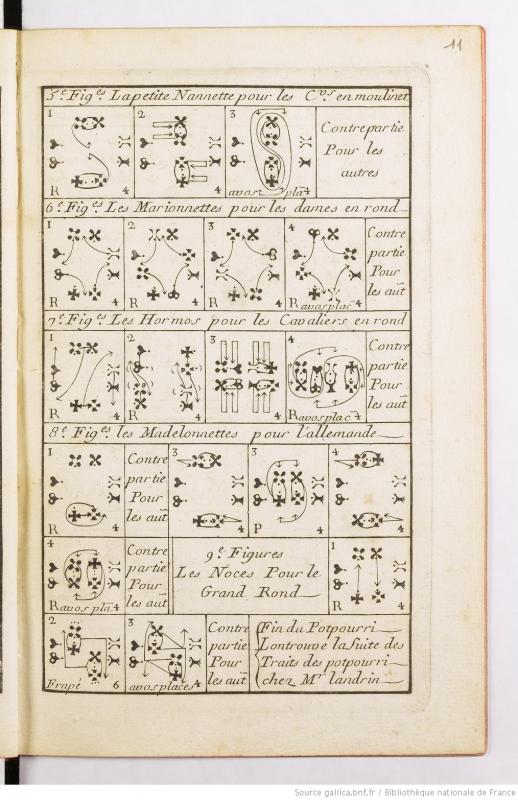 11
5.e Fig.es La petite Nannette pour les C.vs en moulinet
1 2 3
Contre partie
Pour les
autres
R 4 4 avos plã 4
6.e Fig.es Les Marionnettes pour les dames en rond
1 2 3 4
Contre
partie
Pour
les aut̃
R 4 R 4 R 4 R avos plac̃ 4
7.e Fig.es Les Hormos pour les Cavaliers en rond
1 2 3 4
Contre
partie
Pour
les aut̃
R 4 4 4 R avos plac̃ 4
8.e Fig.es les Madelonnettes pour l'allemande
1 3 3 4
Contre
partie
Pour
les aut̃
R 4 4 P 4 4
4 1
Contre
partie
Pour
les aut̃
9.e Figures
Les Noces Pour le
Grand Rond
R avos plã 4 R 4
2 3
Contre
partie
Pour
les aut̃
Fin du Potpourri
Lontrouve la Suite des
Traits des potpourri
chez M.r landrin
Frapé 6 avos places 4
Source gallica.bnf.fr / Bibliothèque nationale de France